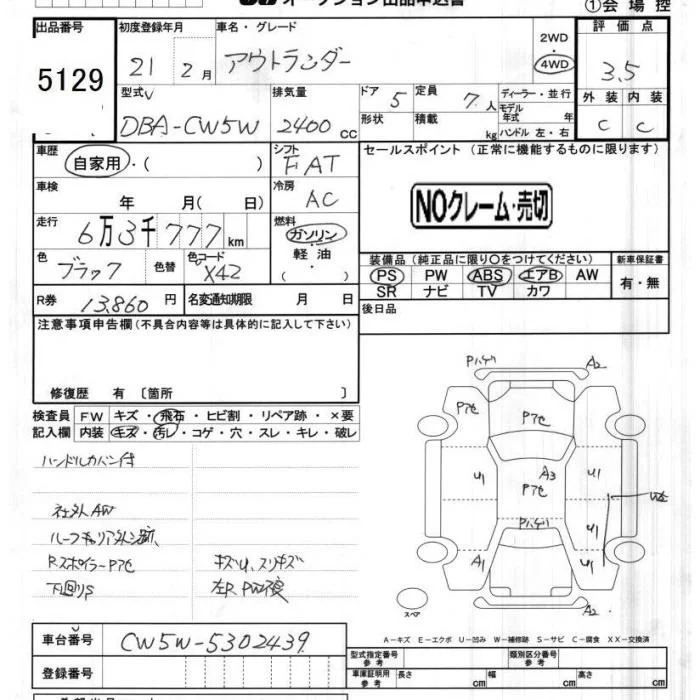 オークション出品申込書
①会場控
出品番号
5129
初度登録年月
21 2月
車名・グレード
アウトランダー
2WD
4WD
評価点
3.5
外装 内装
C C
型式
DBA-CW5W
排気量
2400 cc
ドア 5
形状
定員 7人
積載 kg
ディーラー・並行
モデル年式 年
ハンドル 左・右
車歴
自家用・( )
シフト
FAT
セールスポイント (正常に機能するものに限ります)
NOクレーム・売切
車検
年 月( 日)
冷房
AC
走行
6万3千777km
燃料
ガソリン
・
軽油
( )
色
ブラック
色替
色コード
X42
装備品(純正品に限り○をつけてください)
PS PW ABS エアB AW
SR ナビ TV カワ
新車保証書
有・無
R券 13,860円
名変通知期限 月 日
後日品
注意事項申告欄(不具合内容等は具体的に記入して下さい)
修復歴 有 〔箇所 〕
検査員記入欄
FW キズ・飛石・ヒビ割・リペア跡・×要
内装 キズ・汚レ・コゲ・穴・スレ・キレ・破レ
ハンドルカバー付
社外AW
ルーフキャリア外し跡
RスポイラーPアセ
下回りS
キズU、スリキズ
左R PW不良
Pハゲ A2
Pアセ
Pアセ
U1 A3 U1
Pアセ
Pハゲ
U1
A1 U1
A2
スペア
A－キズ E－エクボ U－凹み W－補修跡 S－サビ C－腐食 XX－交換済
車台番号 CW5W-5302439
登録番号
型式指定番号
参考
類別区分番号
参考
車庫証明用
参考
長さ cm 幅 cm 高さ cm